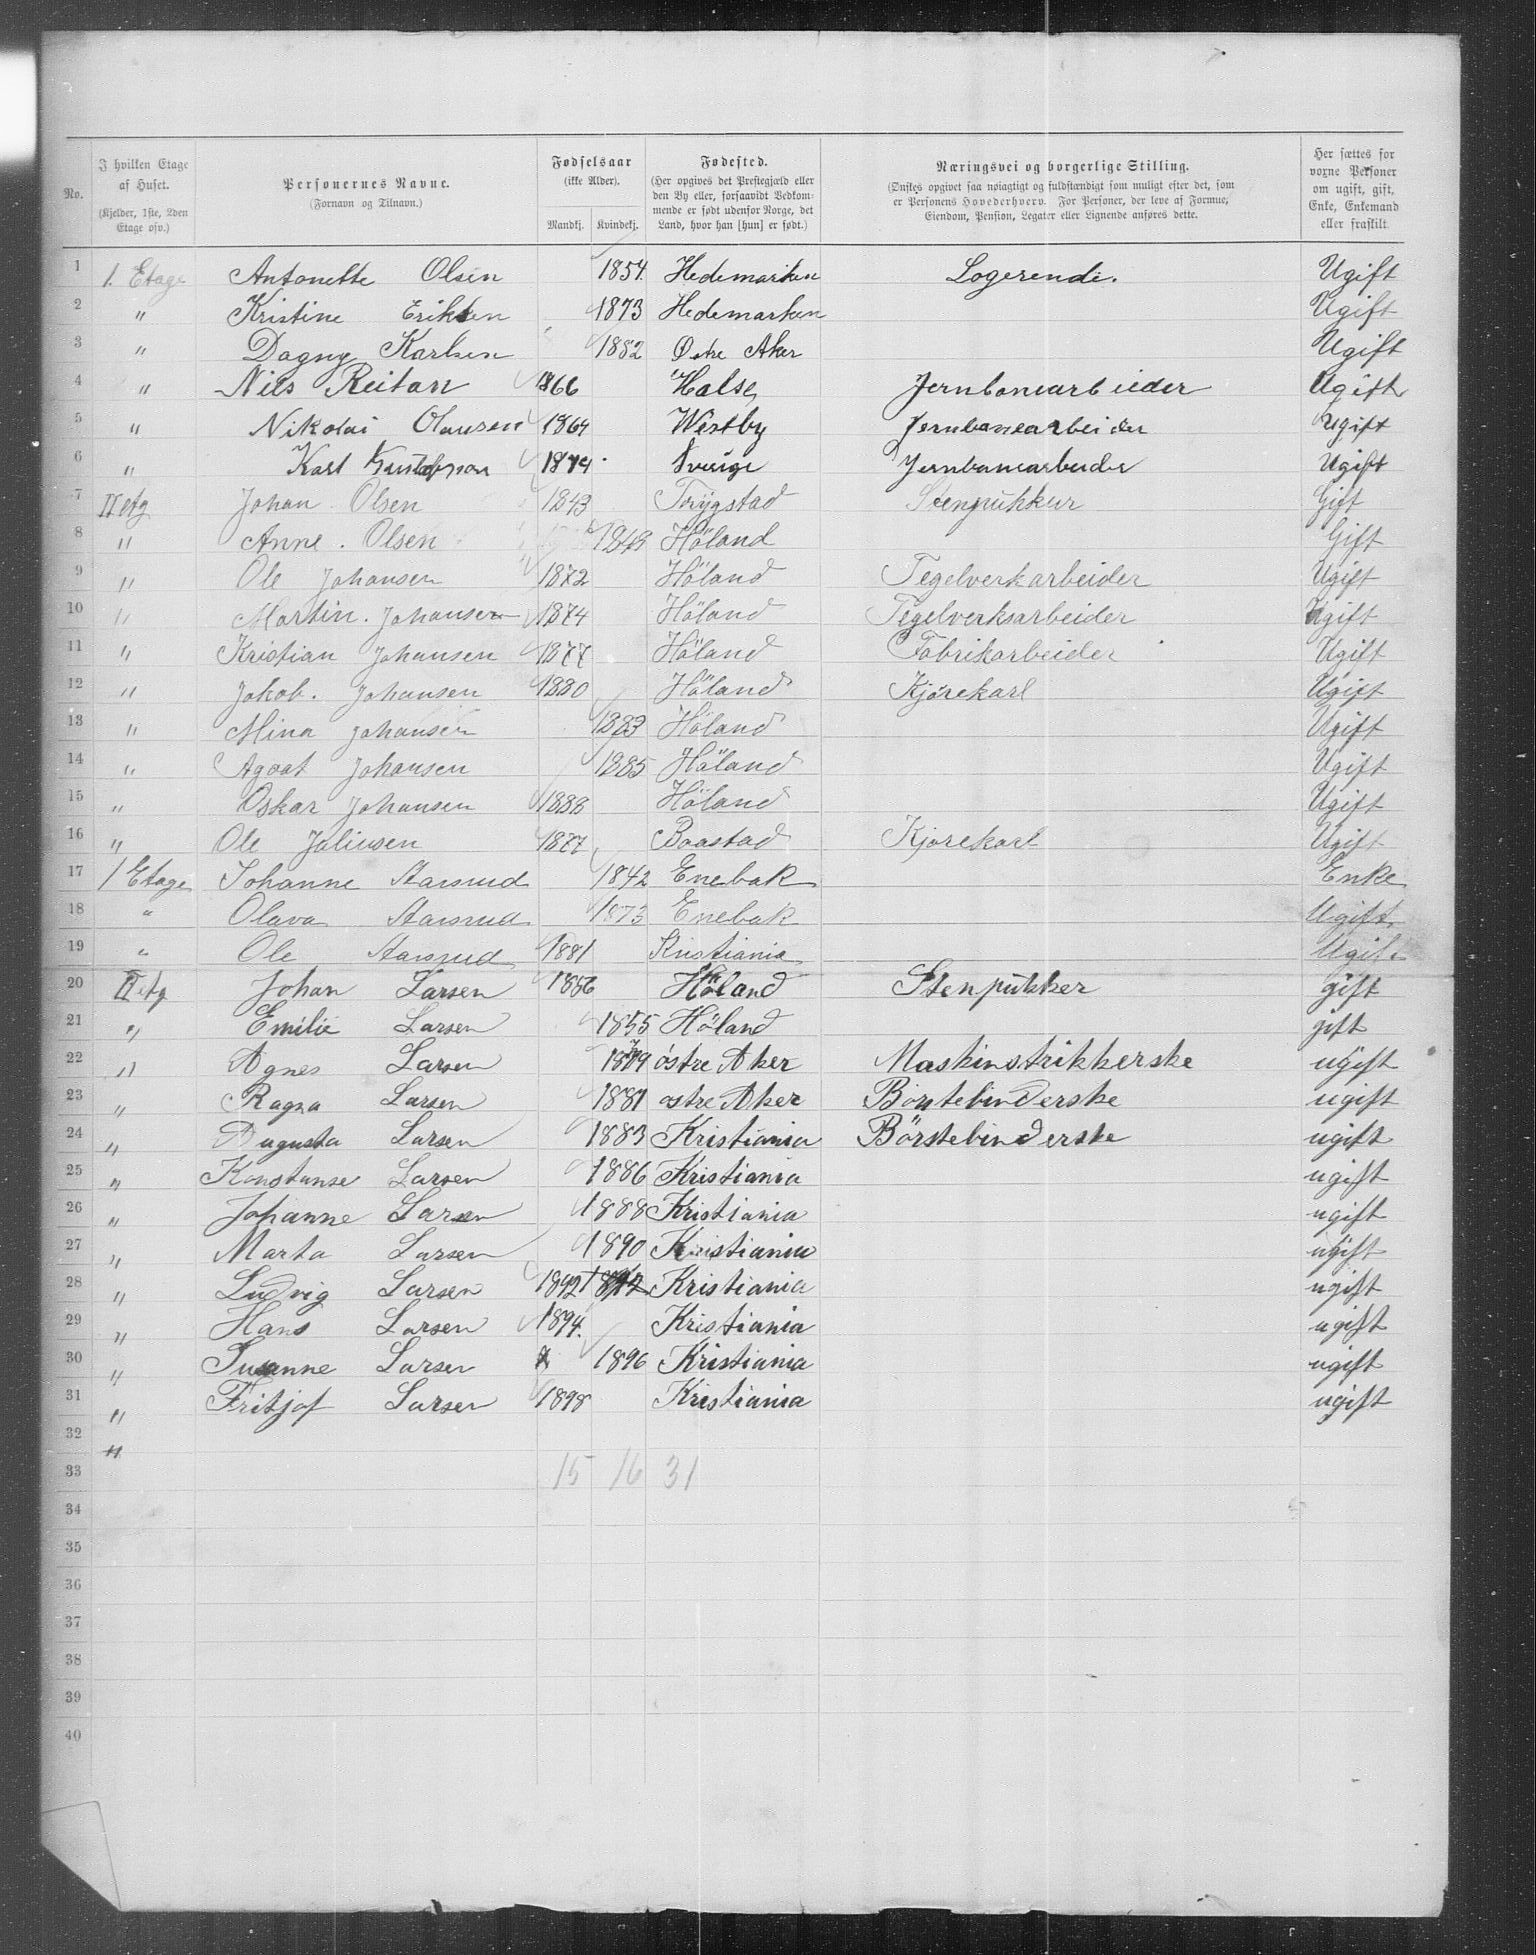 No.
I hvilken Etage af Huset. (Kjelder, 1ste, 2den Etage osv.)
Personernes Navne. (Fornavn og Tilnavn.)
Fødselsaar (ikke Alder). Mandkj. Kvindekj.
Fødested. (Her opgives det Prestegjæld eller den By eller, forsaavidt Vedkommende er født udenfor Norge, det Land, hvor han [hun] er født.)
Næringsvei og borgerlige Stilling. (Ønskes opgivet saa nøiagtigt og fuldstændigt som muligt efter det, som er Personens Hovederhverv. For Personer, der leve af Formue, Eiendom, Pension, Legater eller Lignende anføres dette.
Her sættes for voxne Personer om ugift, gift, Enke, Enkemand eller fraskilt
1 1. Etage Antonette Olsen 1854. Hedemarken Logerende. Ugift
2 " Kristine Eriksen 1873 Hedemarken Ugift
3 " Dagny Karlsen 1882 Østre Aker Ugift
4 " Nils Reitan 1866 Halse Jernbanearbeider Ugift
5 " Nikolai Olausen 1864 Westby Jernbanearbeider Ugift
6 " Karl Gustafson 1874 Sverige Jernbanearbeider Ugift
7 II etg Johan Olsen 1843 Trygstad Stenpukker Gift
8 " Anne. Olsen 1849 Höland Gift
9 " Ole Johansen 1872 Höland Tegelverkarbeider Ugift
10 " Martin. Johansen 1874 Höland Tegelverksarbeider Ugift
11 " Kristian Johansen 1877 Höland Fabrikarbeider Ugift
12 " Jakob. Johansen 1880 Höland Kjörekarl Ugift
13 " Mina Johansen 1883 Höland Ugift
14 " Agaat Johansen 1885 Höland Ugift
15 " Oskar Johansen 1888 Höland Ugift
16 " Ole Juliusen 1877 Baastad Kjörekarl Ugift
17 1 Etage Johanne Aarsrud 1842 Enebak Enke
18 " Olava Aarsrud 1873 Enebak Ugift
19 " Ole Aarsrud 1881 Kristiania Ugift
20 II etg Johan Larsen 1856 Höland Stenpukker gift
21 " Emilie Larsen 1855 Höland gift
22 " Agnes Larsen 1879 östre Aker Maskinstrikkerske ugift
23 " Ragna Larsen 1881 östre Aker Börstebinderske ugift
24 " Augusta Larsen 1883 Kristiania Börstebinderske ugift
25 " Konstanse Larsen 1886 Kristiania ugift
26 " Johanne Larsen 1888 Kristiania ugift
27 " Marta Larsen 1890 Kristiania ugift
28 " Ludvig Larsen 1892 Kristiania ugift
29 " Hans Larsen 1894. Kristiania ugift
30 " Susanne Larsen 1896 Kristiania ugift
31 " Fritjof Larsen 1898 Kristiania ugift
32 "
33 15 16 31
34
35
36
37
38
39
40